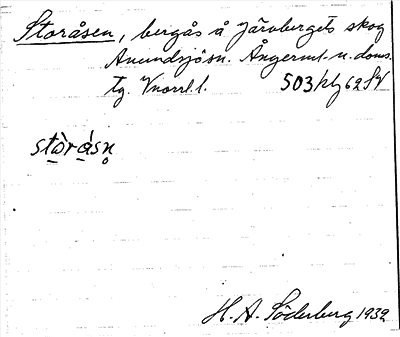 Storåsen, bergås å Järvbergets skog
Anundsjösn. Ångerml. n. doms.
tg. Vnorrl. l. 503/kbg 62 SV
stòrásn̥
H. A. Söderberg 1932